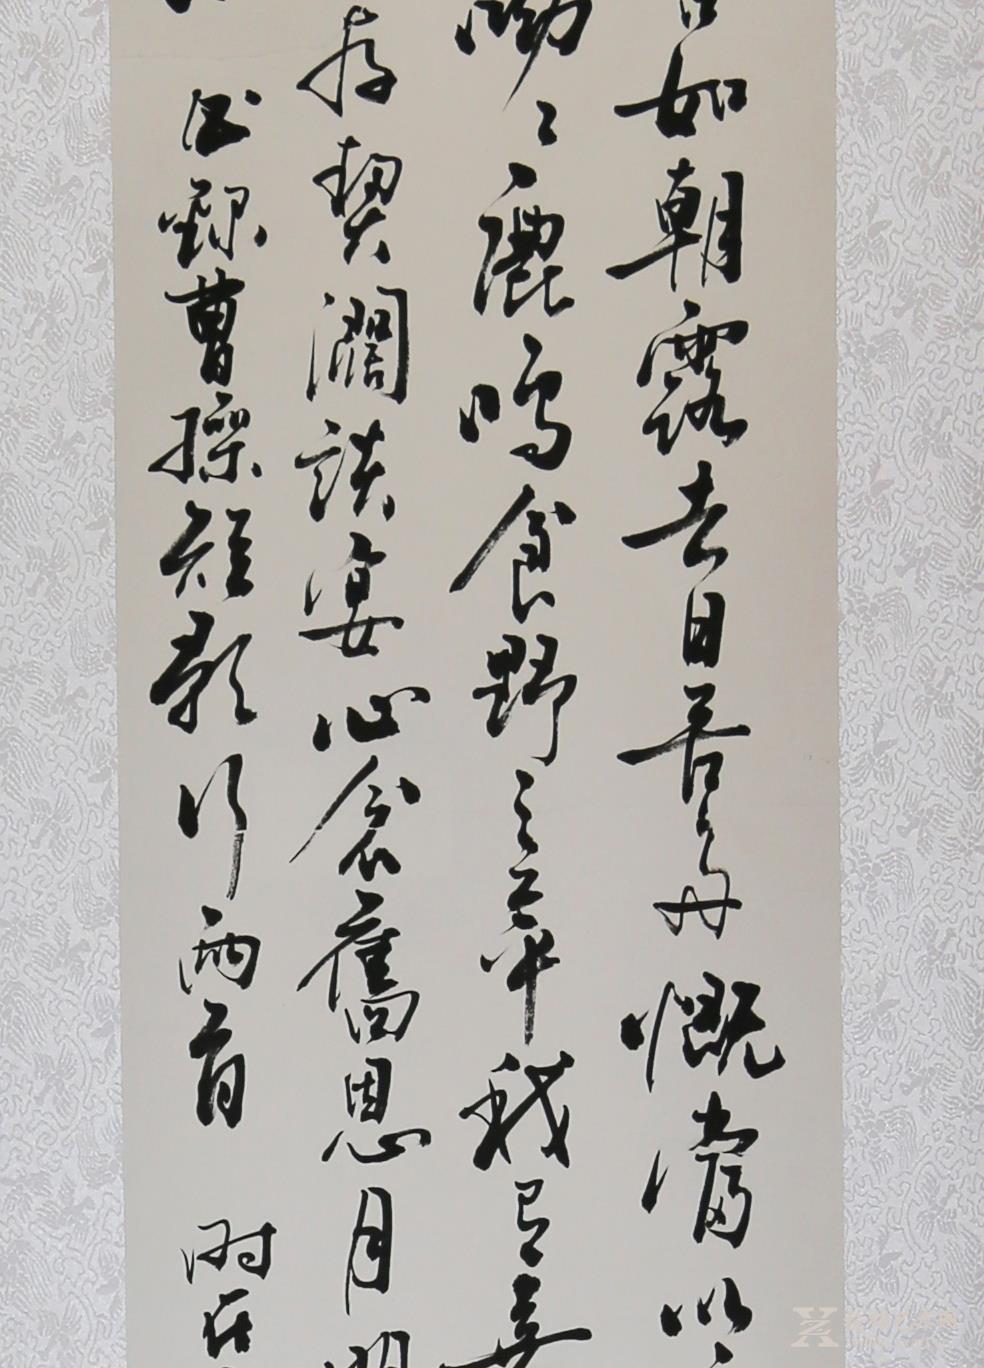 如朝露去日苦多慨當以
呦々鹿鳴食野之苹我有嘉
存契濶談宴心念舊恩月
錄曹操短歌行兩首 时在